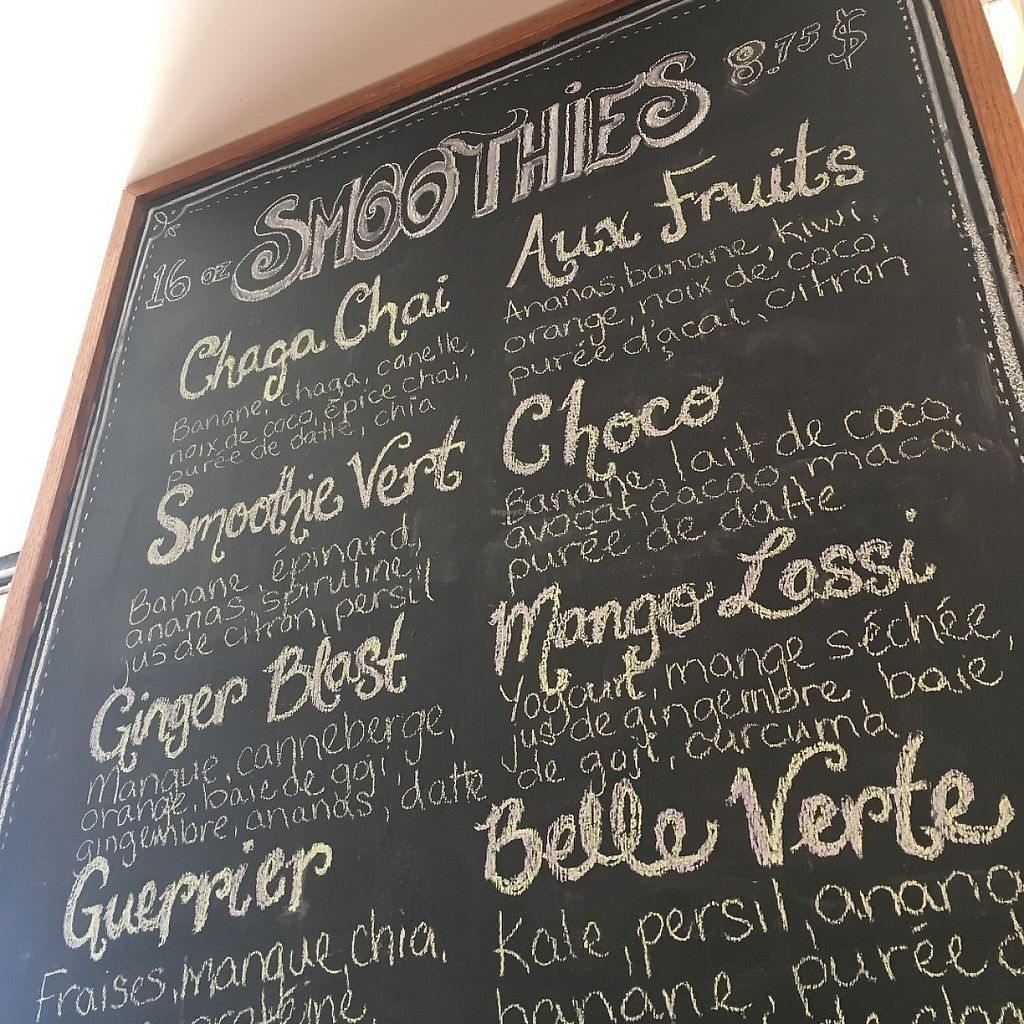 16 oz SMOOTHiES 8.75 $
Chaga Chai
Banane, chaga, canelle,
noix de coco, épice chai,
purée de datte, chia
Smoothie Vert
Banane, épinard,
ananas, spiruline,
jus de citron, persil
Ginger Blast
Mangue, canneberge,
orange, baie de goji,
gingembre, ananas, datte
Guerrier
Fraises, mangue, chia,
Aux Fruits
Ananas, banane, kiwi,
orange, noix de coco,
purée d'açai, citron
Choco
Banane, lait de coco,
avocat, cacao, maca,
purée de datte
Mango Lassi
Yogourt, mange séchée,
jus de gingembre, baie
de goji, curcuma
Belle Verte
Kale, persil, anana
banane, purée d